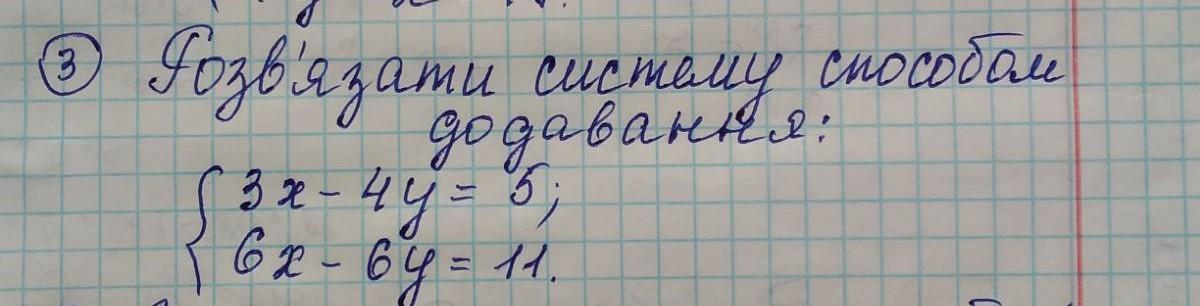 3 Розв'язати систему способом
додавання:
3x - 4y = 5;
6x - 6y = 11.